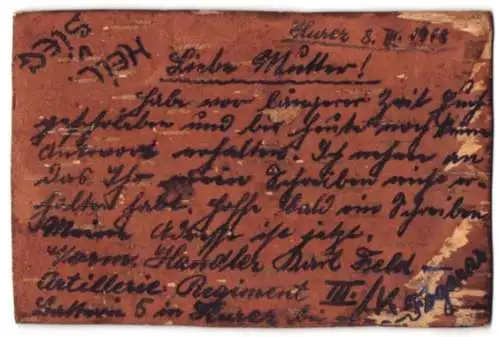 HEIL u. SIEG
Hurez 8. III. 1918
Liebe Mutter!
Habe vor längerer Zeit Euch
geschrieben und bis heute noch keine
Antwort erhalten. Ich nehme an
das Ihr mein Schreiben nicht er
halten habt, hoffe bald ein Schreiben
Meine Adresse ist jetzt.
Vorm. Handler Karl Feld
Artillerie Regiment III/
Batterie 5 in Hurez bei Fogaras